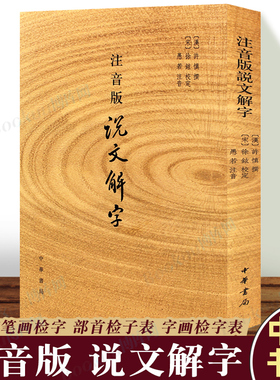 [漢] 許慎 撰
[宋] 徐鉉 校定
愚若 注音
注音版
说文解字
中華書局
注音版说文解字
[漢] 許慎 撰
[宋] 徐鉉 校定
愚若 注音
中華書局
笔画检字 部首检子表 字画检字表
音版 说文解字